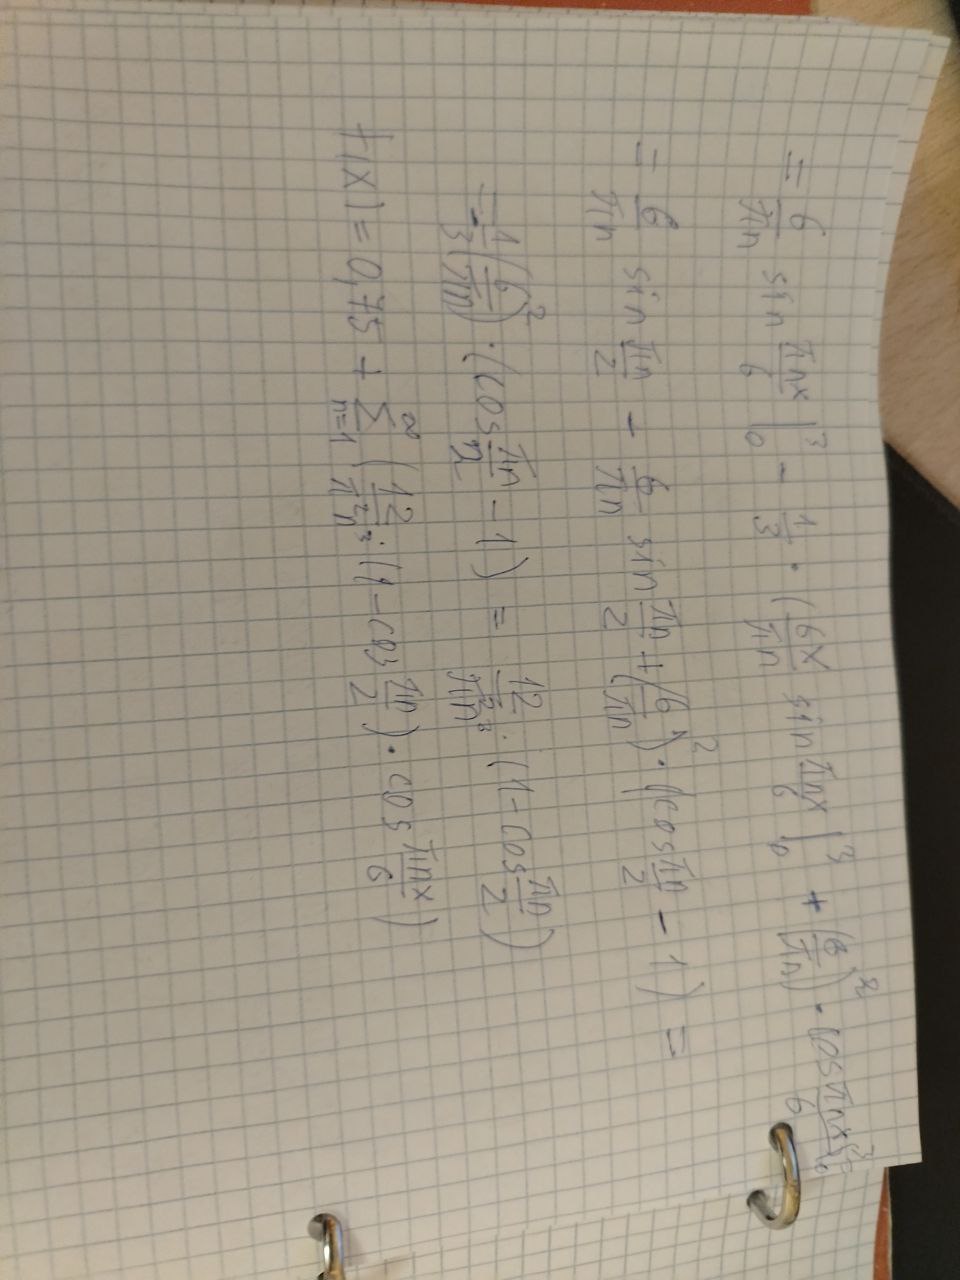 = 6/πn sin πnx/6 |₀³ - 1/3 · (6x/πn sin πnx/6 |₀³ + (6/πn)² · cos πnx/6 |₀³ =
= 6/πn sin πn/2 - 6/πn sin πn/2 + (6/πn)² · (cos πn/2 - 1) =
= - 1/3 (6/πn)² · (cos πn/2 - 1) = 12/π²n² · (1 - cos πn/2)
f(x) = 0,75 + ∑ₙ₌₁^∞ (12/π²n² · (1 - cos πn/2) · cos πnx/6)